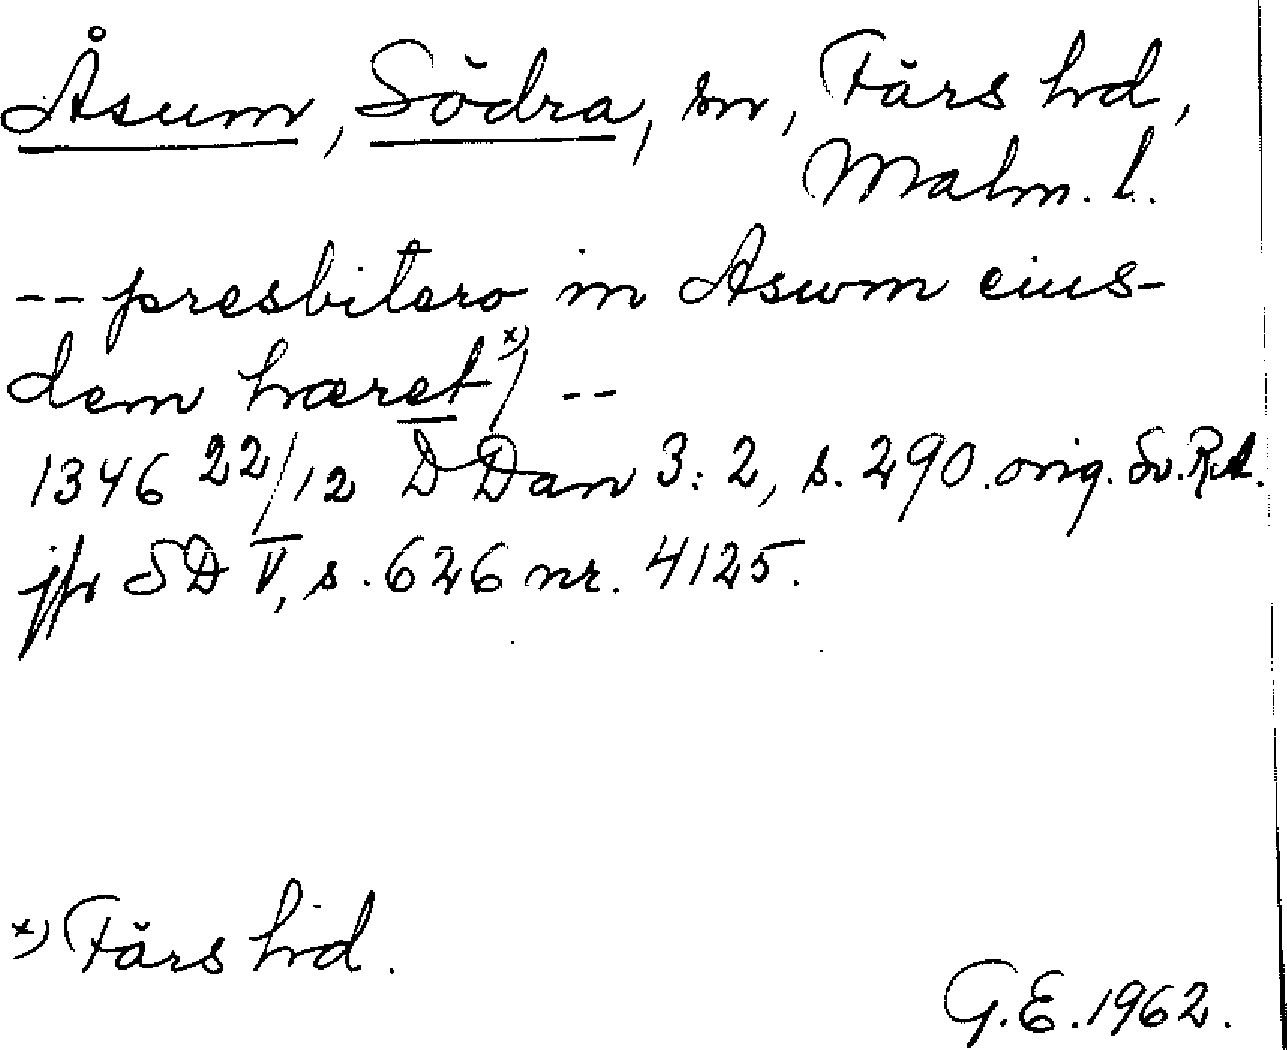 Åsum, Södra, sn, Färs hd,
Malm. l.
-- presbitero in Aswm eius-
dem hæret *) / --
1346 22/12 D Dan 3:2, s. 290. orig. Sv. RA.
jfr SD V, s. 626 nr. 4125.
*) Färs hd.
G.E. 1962.